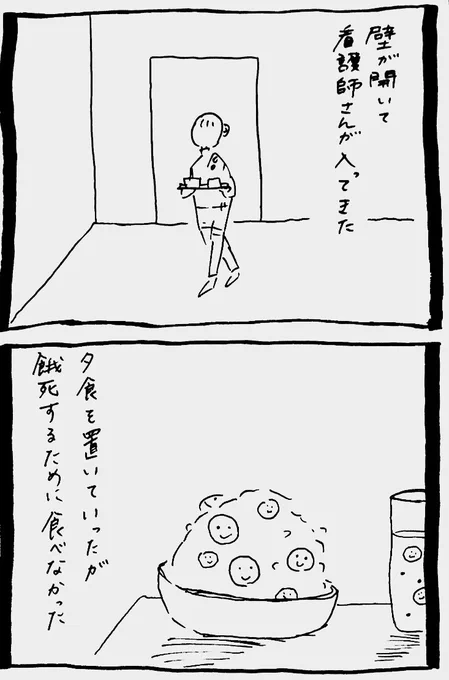 壁が開いて
看護師さんが入ってきた
夕食を置いていったが
餓死するために食べなかった